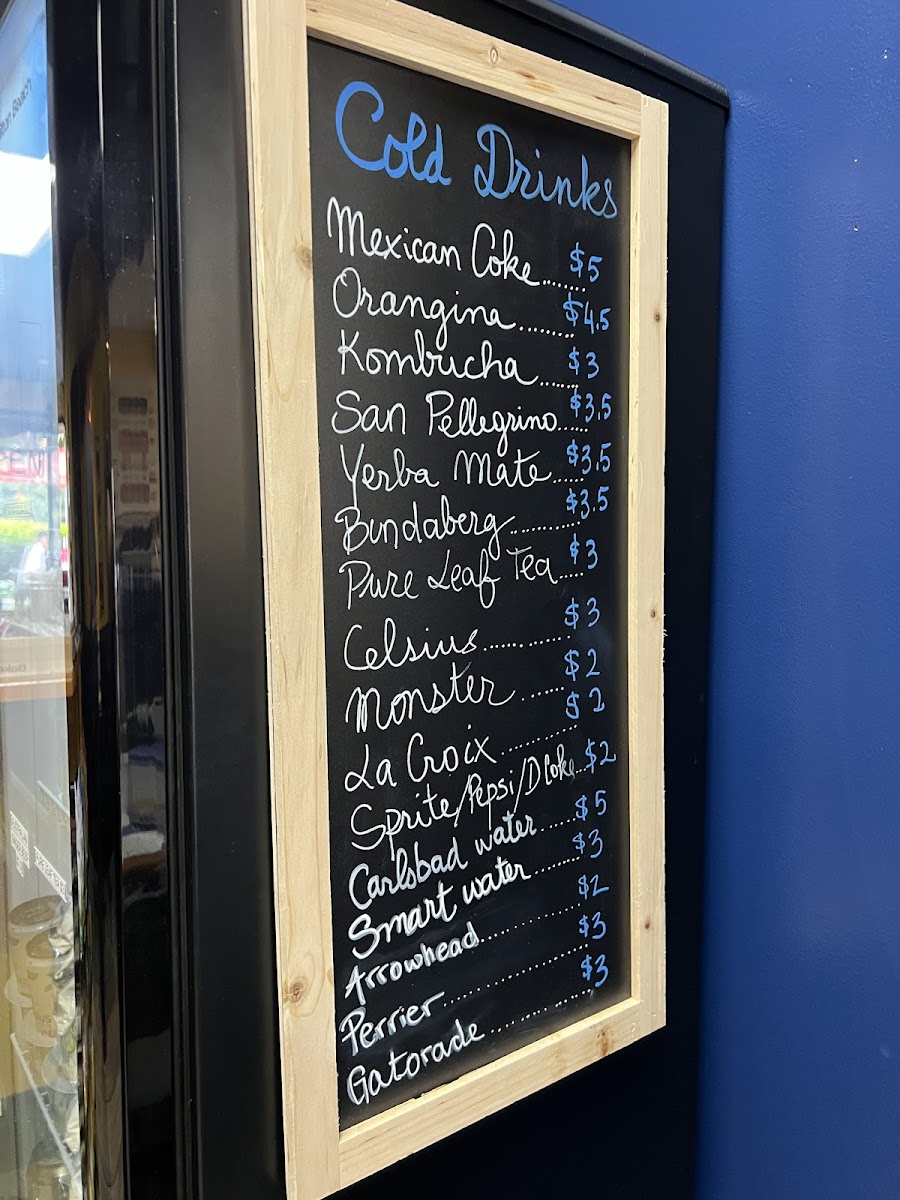 Cold Drinks
Mexican Coke......$5
Orangina.......$4.5
Kombucha......$3
San Pellegrino.....$3.5
Yerba Mate.....$3.5
Bundaberg..........$3.5
Pure Leaf Tea.....$3
Celsius............$3
Monster......$2
La Croix..........$2
Sprite/Pepsi/D Coke...$2
Carlsbad water.....$5
Smart water.......$3
Arrowhead..............$2
Perrier..................$3
Gatorade.............$3